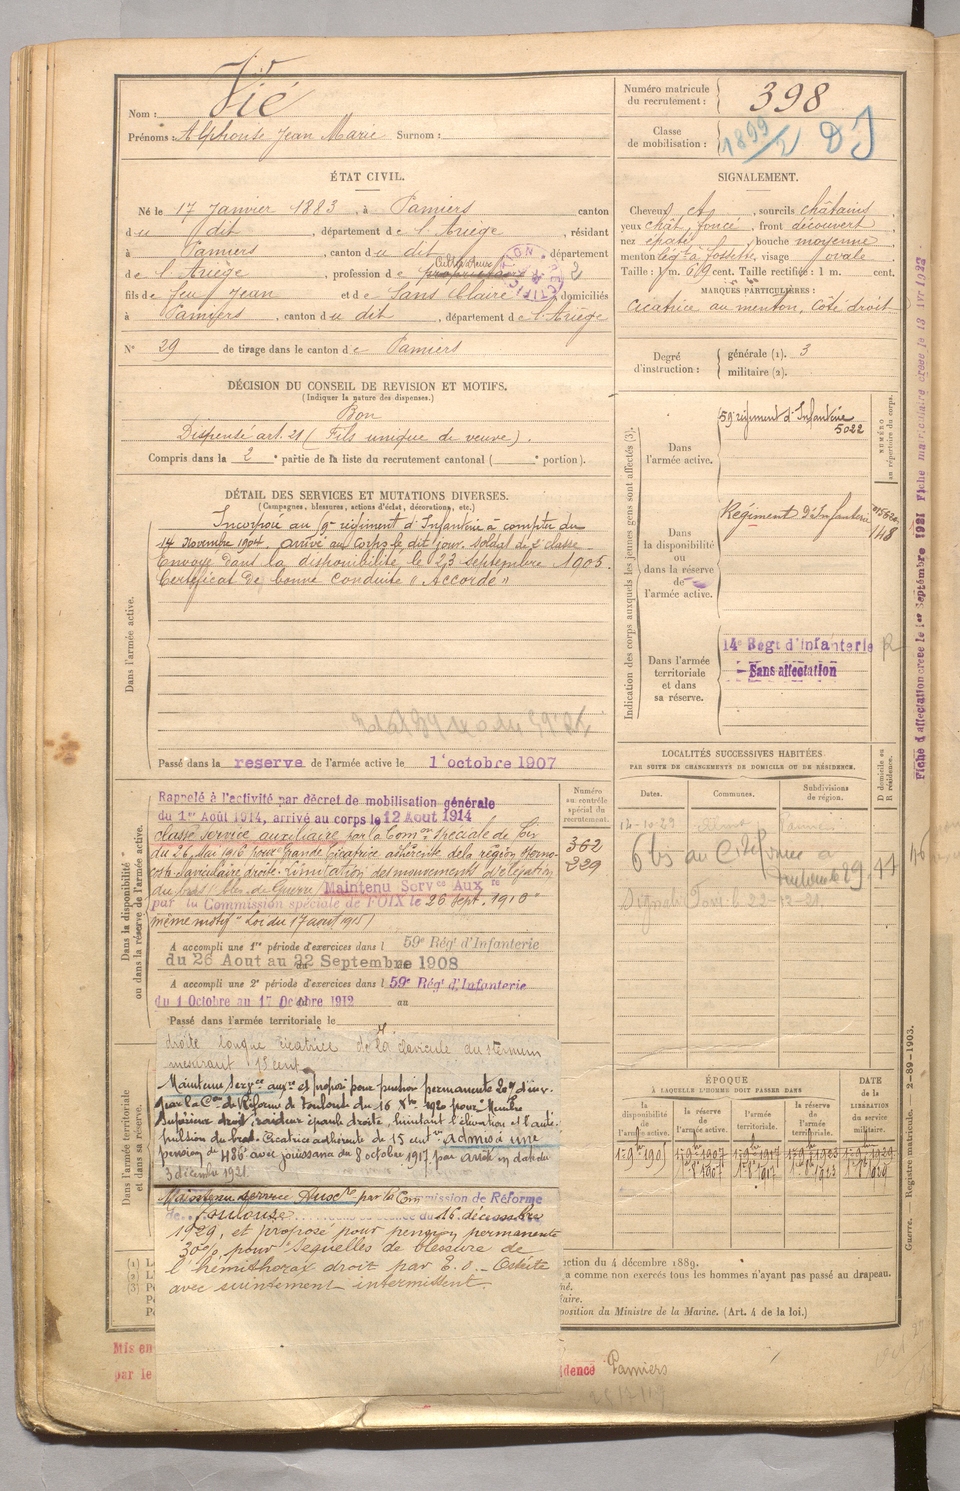 Nom : Vié
Prénoms : Alphonse Jean Marie Surnom :
Numéro matricule du recrutement : 398
Classe de mobilisation : 1899/2 DJ
ÉTAT CIVIL.
Né le 17 Janvier 1883, à Pamiers canton
du dit, département de l'Ariège, résidant
à Pamiers, canton du dit, département
de l'Ariège, profession de propriétaire Cultivateur 2
fils de feu Jean et de Sans Claire domiciliés
à Pamiers, canton du dit, département de l'Ariège
N° 29 de tirage dans le canton de Pamiers
SIGNALEMENT.
Cheveux ct, sourcils châtains
yeux chât. foncé, front découvert
nez épaté, bouche moyenne
menton à fossette, visage ovale
Taille : 1 m. 69 cent. Taille rectifiée : 1 m. cent.
MARQUES PARTICULIÈRES :
Cicatrice au menton, côté droit
Degré d'instruction : générale (1). 3
militaire (2).
DÉCISION DU CONSEIL DE REVISION ET MOTIFS.
(Indiquer la nature des dispenses.)
Bon
Dispensé art. 21 (Fils unique de veuve).
Compris dans la 2e partie de la liste du recrutement cantonal ( e portion).
DÉTAIL DES SERVICES ET MUTATIONS DIVERSES.
(Campagnes, blessures, actions d'éclat, décorations, etc.)
Dans l'armée active.
Incorporé au 59e régiment d'Infanterie à compter du
14 Novembre 1904. Arrivé au Corps le dit jour. Soldat de 2e classe
Envoyé dans la disponibilité le 23 septembre 1905.
Certificat de bonne conduite "Accordé"
Passé dans la reserve de l'armée active le 1e octobre 1907
Indication des corps auxquels les jeunes gens sont affectés (3).
NUMÉRO au répertoire du corps.
Dans l'armée active.
59e régiment d'Infanterie
5022
Dans la disponibilité ou dans la réserve de l'armée active.
Régiment d'Infanterie
148
Dans l'armée territoriale et dans sa réserve.
14e Regt d'infanterie
Sans affectation
Fiche d'affectation créée le 1er Septembre 1921 Fiche matriculaire créée le 13 Avr 1922
LOCALITÉS SUCCESSIVES HABITÉES
PAR SUITE DE CHANGEMENTS DE DOMICILE OU DE RÉSIDENCE.
Dates. Communes. Subdivisions de région. D domicile ou R résidence.
12-10-29
6 bis
Foix 22-12-21
Dans la disponibilité ou dans la réserve de l'armée active.
Numéro au contrôle spécial du recrutement.
362
229
Rappelé à l'activité par décret de mobilisation générale
du 1er Août 1914, arrivé au corps le 12 Aout 1914
classé service auxiliaire par la Comon spéciale de Foix
du 26 Mai 1916 pour grande cicatrice adhérente de la région sterno
claviculaire droite. Limitation des mouvements d'élévation
du bras (bles. de Guerre) Maintenu Servce Auxre
par la Commission spéciale de FOIX le 26 Sept. 1916
même motif "Loi du 17 aout 1915)
A accompli une 1re période d'exercices dans l 59e Rég' d'Infanterie
du 26 Aout au 22 Septembre 1908
A accompli une 2e période d'exercices dans l 59e Rég' d'Infanterie
du 1 Octobre au 17 Octobre 1912 au
Passé dans l'armée territoriale le
Dans l'armée territoriale et dans sa réserve.
droite longue cicatrice de la clavicule au sternum
mesurant 15 cent.
Maintenu servce auxre et proposé pour pension permanente 20% d'inv.
par la Con de Réforme de Toulouse du 16 Xbre 1920 pour "Membre
Supérieur droit, raideur épaule droite, limitant l'élévation et l'anté
pulsion du bras. Cicatrice adhérente de 15 centres Admis à une
pension de 486f avec jouissance du 8 octobre 1917 par arrêté en date du
3 décembre 1921.
Maintenu service Auxre par la Commission de Réforme
de Toulouse du 16 décembre
1929, et proposé pour pension permanente
30% pour "sequelles de blessure de
l'hémithorax droit par E.O. - Ostéite
avec suintement intermittent.
ÉPOQUE
À LAQUELLE L'HOMME DOIT PASSER DANS
la disponibilité de l'armée active.
la réserve de l'armée active.
l'armée territoriale.
la réserve de l'armée territoriale.
DATE de la LIBÉRATION du service militaire.
Guerre. — Registre matricule. — 2-89-1903.
ction du 4 décembre 1889.
a comme non exercés tous les hommes n'ayant pas passé au drapeau.
position du Ministre de la Marine. (Art. 4 de la loi.)
Mis en
par le
dence Pamiers